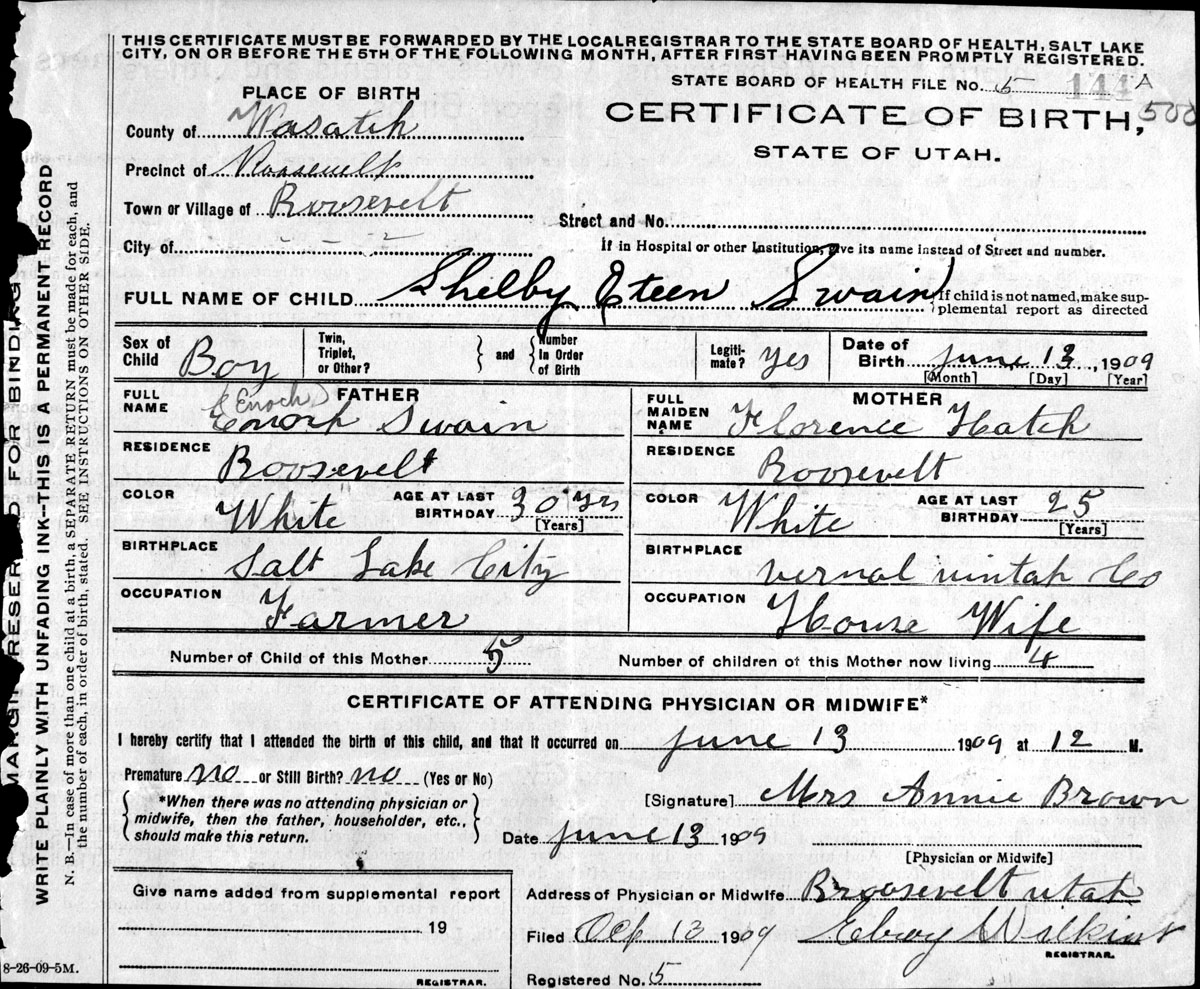 THIS CERTIFICATE MUST BE FORWARDED BY THE LOCAL REGISTRAR TO THE STATE BOARD OF HEALTH, SALT LAKE
CITY, ON OR BEFORE THE 5TH OF THE FOLLOWING MONTH, AFTER FIRST HAVING BEEN PROMPTLY REGISTERED.
STATE BOARD OF HEALTH FILE No. 5 144 A
500
PLACE OF BIRTH
CERTIFICATE OF BIRTH,
STATE OF UTAH.
County of Wasatch
Precinct of Roosevelt
Town or Village of Roosevelt
Street and No.
City of
If in Hospital or other Institution, give its name instead of Street and number.
FULL NAME OF CHILD Shelby Eteen Swain
If child is not named, make sup-
plemental report as directed
Sex of Child Boy
Twin, Triplet, or Other?
and
Number In Order of Birth
Legiti-mate? yes
Date of Birth June 13, 1909
[Month] [Day] [Year]
FATHER
FULL NAME Enoch Swain
(Enoch)
MOTHER
FULL MAIDEN NAME Florence Hatch
RESIDENCE Roosevelt
RESIDENCE Roosevelt
COLOR White
AGE AT LAST BIRTHDAY 30 yrs
[Years]
COLOR White
AGE AT LAST BIRTHDAY 25
[Years]
BIRTHPLACE Salt Lake City
BIRTHPLACE vernal uintah Co
OCCUPATION Farmer
OCCUPATION House Wife
Number of Child of this Mother 5
Number of children of this Mother now living 4
CERTIFICATE OF ATTENDING PHYSICIAN OR MIDWIFE*
I hereby certify that I attended the birth of this child, and that it occurred on June 13 1909 at 12 M.
Premature no or Still Birth? no (Yes or No)
*When there was no attending physician or
midwife, then the father, householder, etc.,
should make this return.
[Signature] Mrs Annie Brown
Date June 13 1909
[Physician or Midwife]
Give name added from supplemental report
19
REGISTRAR.
Address of Physician or Midwife Roosevelt utah
Filed 13 1909
REGISTRAR.
Registered No. 5
8-26-09-5M.
MARGIN RESERVED FOR BINDING
WRITE PLAINLY WITH UNFADING INK—THIS IS A PERMANENT RECORD
N. B.—In case of more than one child at a birth, a SEPARATE RETURN must be made for each, and
the number of each, in order of birth, stated. SEE INSTRUCTIONS ON OTHER SIDE.